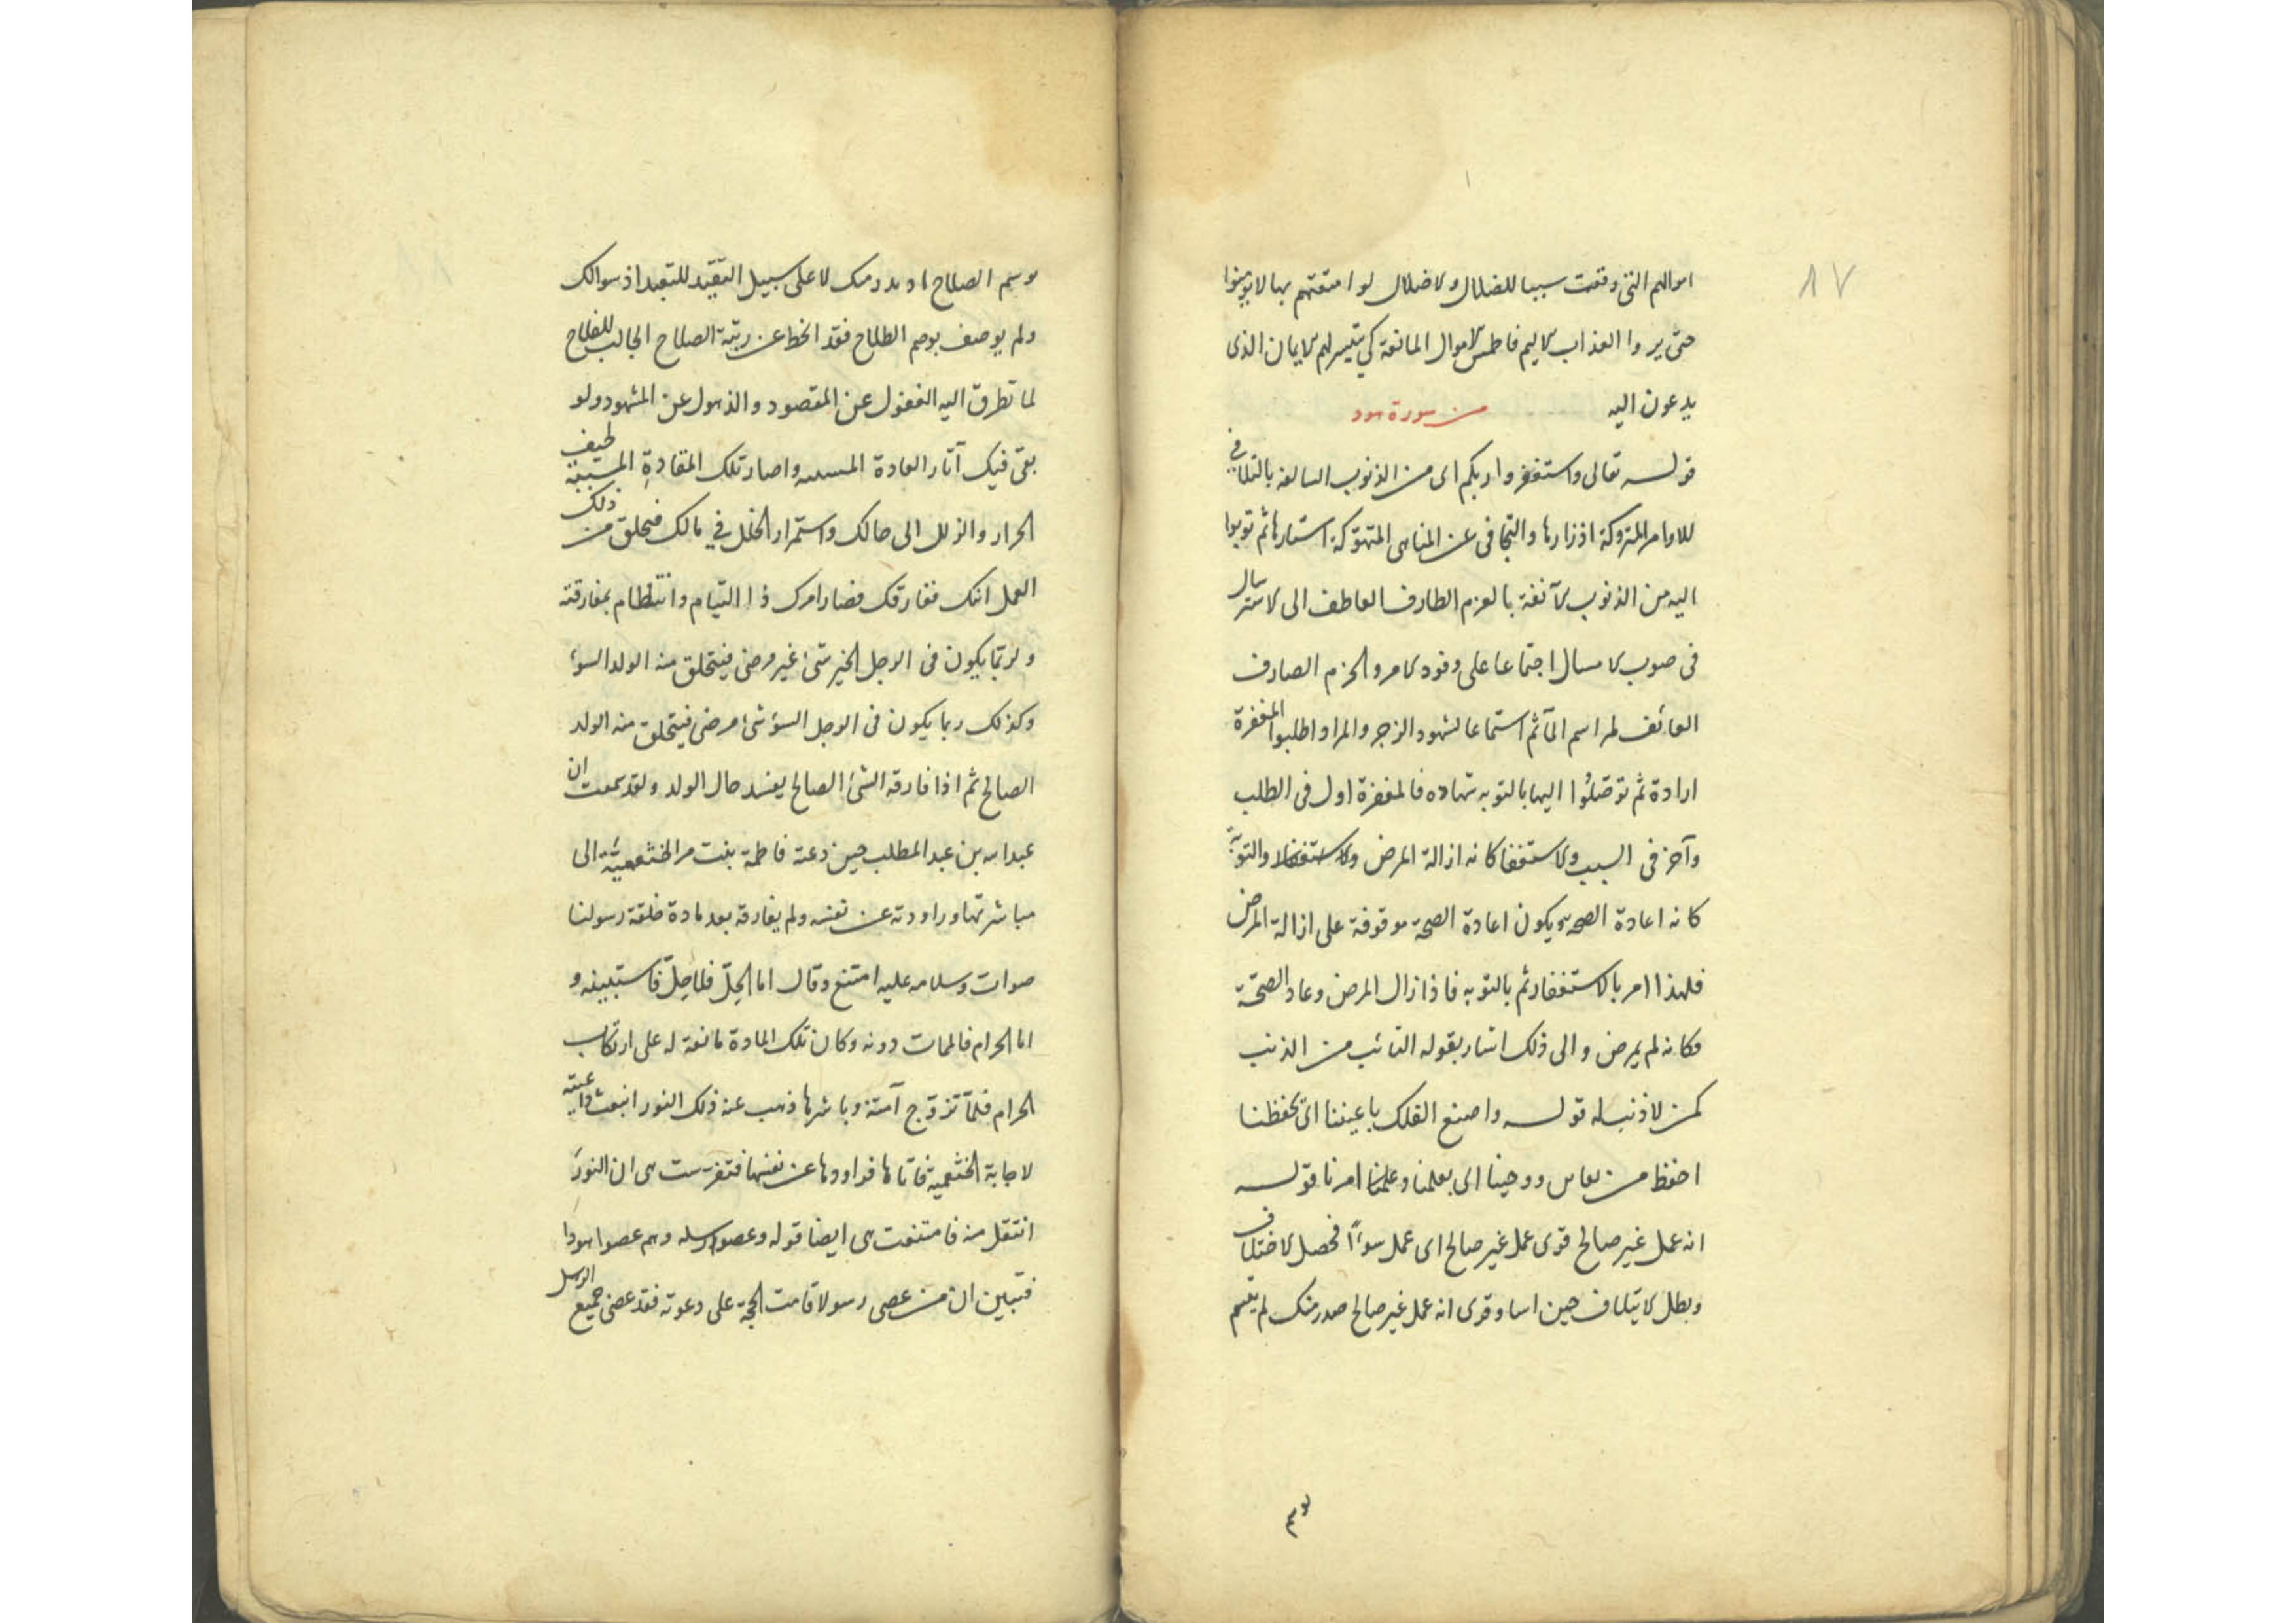 ٨٧
اموالهم التى وقعت سببا للضلال ولاضلال لو امتعتهم بها لا يؤمنوا
حتى يروا العذاب الاليم فاطمس الاموال المانعة كى يتيسر لهم الايمان الذى
يدعون اليه من سورة هود
قوله تعالى واستغفروا ربكم اى من الذنوب السالفة بالتلافى
للاوامر المتروكة اوزارها والتجافى عن المناهى المتهوكة استارها ثم توبوا
اليه من الذنوب الآنفة بالعزم الطارف العاطف الى الاسترسال
فى صوب الامسال اجتماعا على وفود الامر والحزم الصارف
العائف لمراسم المآثم استماعا لشهود الزجر والمراد اطلبوا المغفرة
ارادة ثم توصلوا اليها بالتوبه شهاده فالمغفرة اول فى الطلب
وآخر فى السبب والاستغفا كانه ازالة المرض والتوبة
كانه اعادة الصحه ويكون اعادة الصحة موقوفة على ازالة المرض
فلهذا امر بالاستغفار ثم بالتوبه فاذا زال المرض وعاد الصحة
فكانه لم يمرض والى ذلك اشار بقوله التائب من الذنب
كمن لا ذنب له قوله واصنع الفلك باعيننا اى بحفظنا
احفظ من ووحينا اى بعلمنا وعلمنا امرنا قوله
انه عمل غير صالح قرى عمل غير صالح اى عمل سوءا فحصل الاختلاف
وبطل الايتلاف حين اسا وقرى انه عمل غير صالح صدر منك لم يتسم
بوسم
بوسم الصلاح اذ بدر منك لا على سبيل التقيد للتعبد اذ سوالك
ولم يوصف بوصم الطلاح فقد انحط عن رتبة الصلاح الجالب للفلاح
لما تطرق اليه الغفول عن المقصود والذهول عن المشهود ولو
بقى فيك آثار العادة واصار تلك المقادة المسببة طيف
الحرار والزلل الى حالك واستمرار الخلل فى مالك فتخلق من ذلك
العمل انك ففارقك فصار امرك ذا التيام وانتظام بمفارقته
ولربما يكون فى الرجل الخير شئ غير مرضى فيتخلق منه الولد السوء
وكذلك ربما يكون فى الرجل السوء شئ مرضى فيتخلق منه الولد
الصالح ثم اذا فارقه الشئ الصالح يفسد حال الولد ولقد سمعت ان
عبد الله بن عبد المطلب حين دعته فاطمة بنت مر الخثعمية الى
مباشرتها وراودته عن نفسه ولم يفارقه بعد مادة خلقة رسولنا
صوات وسلامه عليه امتنع وقال اما الحل فلا حل فاستبينه و
اما الحرام فالممات دونه وكان تلك المادة مانعة له على ارتكاب
الحرام فلما تزوج آمنة وباشرها ذهب عنه ذلك النور انبعث داعيته
لاجابة الخثعمية فاتاها فراودها عن نفسها فتفرست هى ان النور
انتقل منه فامتنعت هى ايضا قوله وعصوا رسله وهم عصوا هودا
فتبين ان من عصى رسولا قامت الحجة على دعوته فقد عصى جميع الرسل